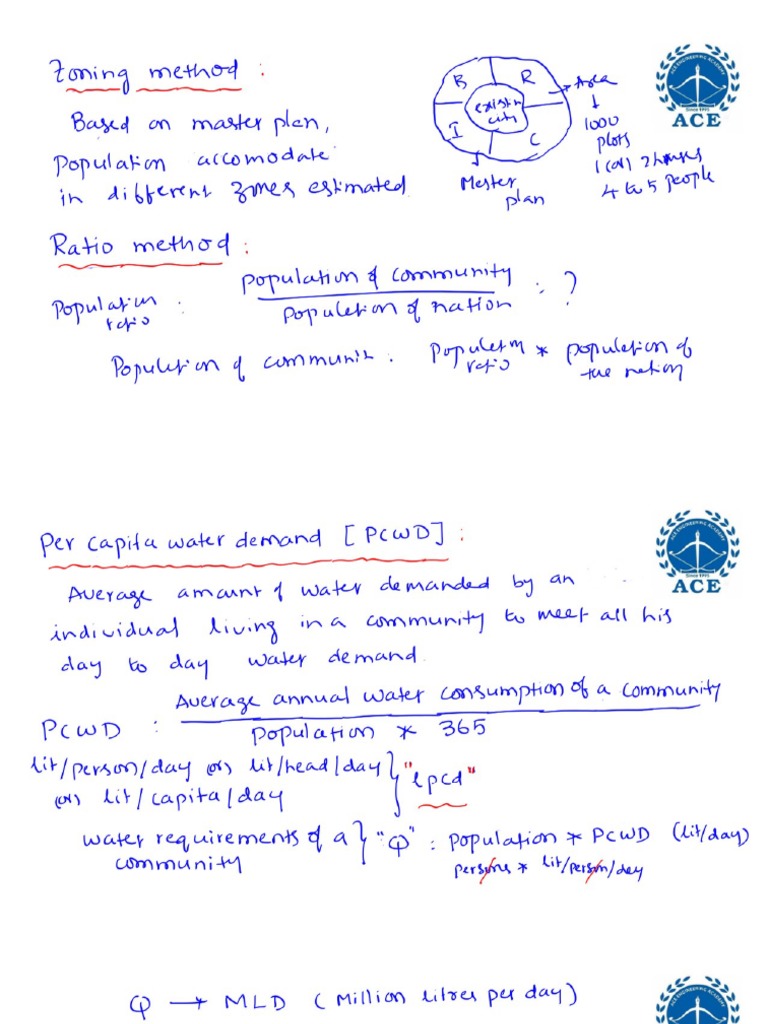 Zoning method :
Based on master plan,
population accomodate
in different zones estimated
B R
existin
city
I C
Master
plan
Area
1000
plots
1 (or) 2 houses
4 to 5 people
ACE ENGINEERING ACADEMY
Since 1995
ACE
Ratio method :
Population
ratio : population of community / population of nation : ?
Population of communit : Population
ratio * population of
the nation
Per capita water demand [PCWD] :
Average amount of water demanded by an
individual living in a community to meet all his
day to day water demand.
PCWD : Average annual water consumption of a community / population * 365
lit/person/day (or) lit/head/day
(or) lit/capita/day } "lpcd"
water requirements of a
community } "Q" : population * PCWD (lit/day)
persons * lit/person/day
ACE ENGINEERING ACADEMY
Since 1995
ACE
Q → MLD ( Million litres per day)